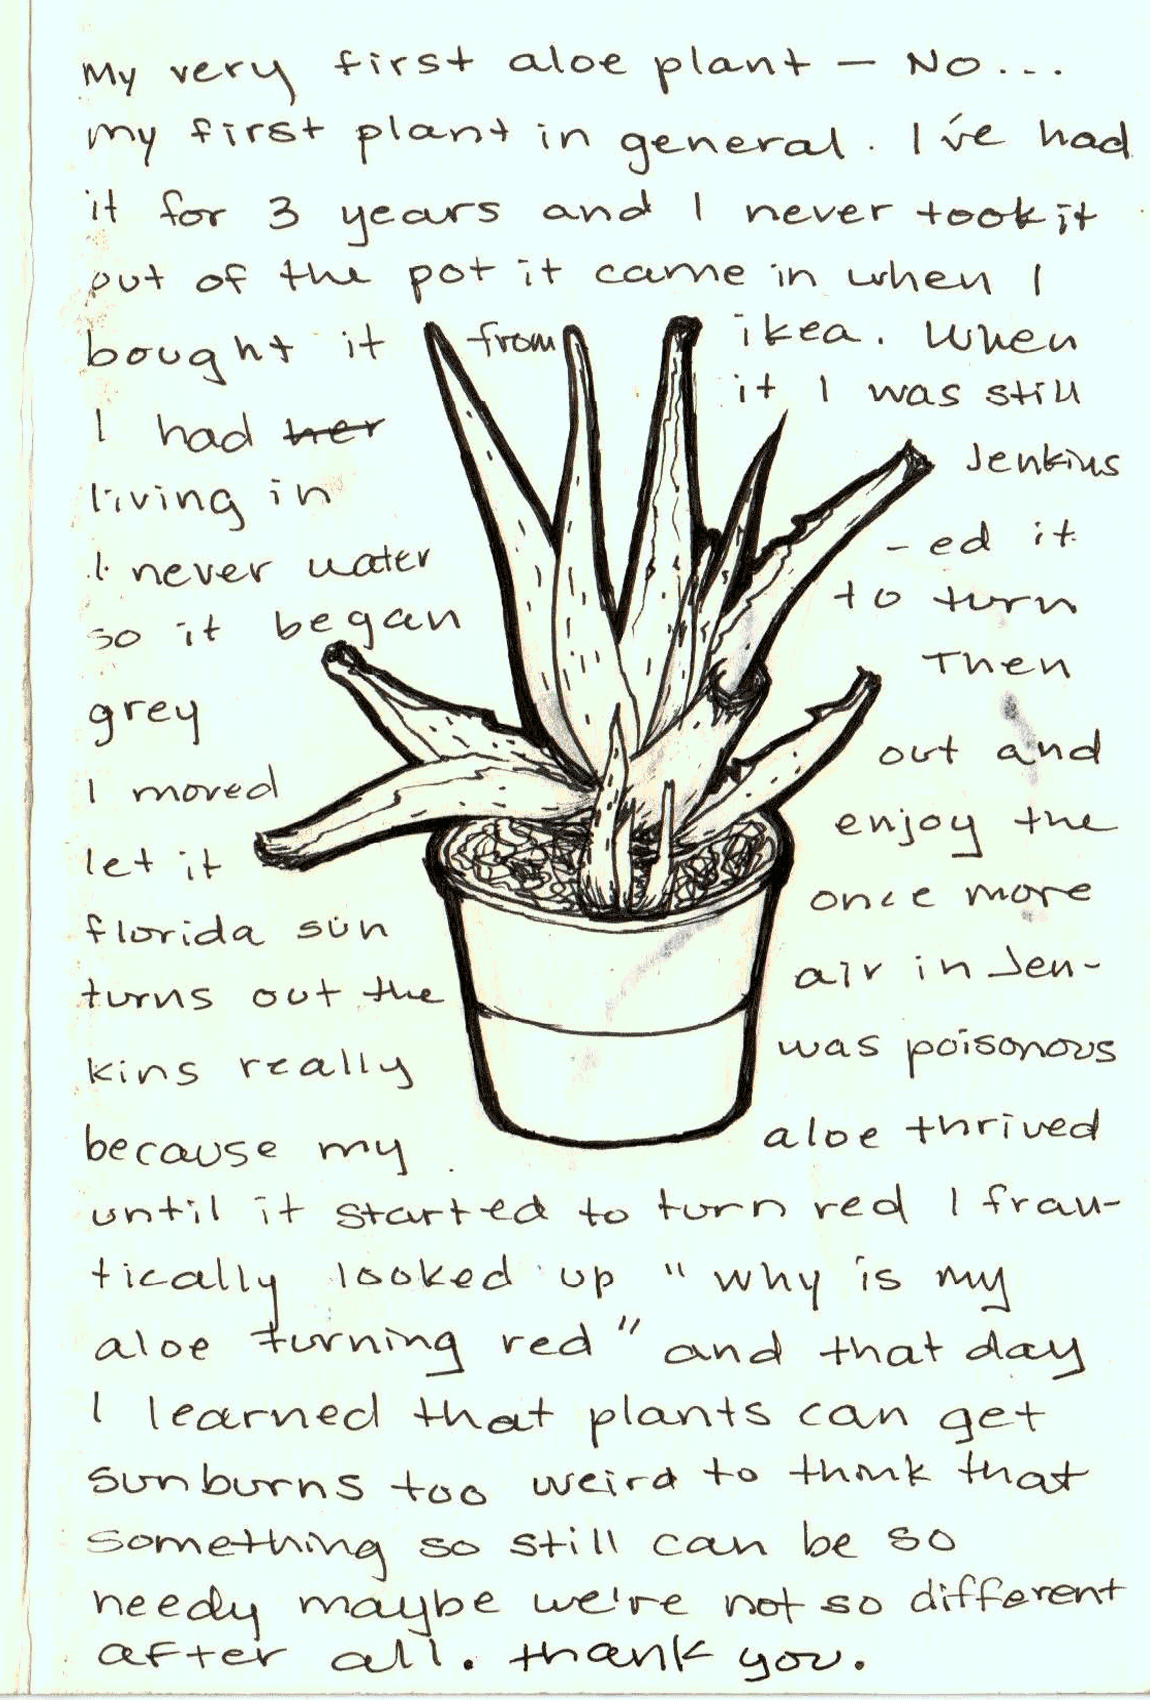 My very first aloe plant — No...
my first plant in general. I've had
it for 3 years and I never took it
out of the pot it came in when I
bought it from ikea. When
I had ~~her~~ it I was still
living in Jenkins
I never water -ed it
so it began to turn
grey Then
I moved out and
let it enjoy the
florida sun once more
turns out the air in Jen-
kins really was poisonous
because my aloe thrived
until it started to turn red I fran-
tically looked up "why is my
aloe turning red" and that day
I learned that plants can get
sunburns too weird to think that
something so still can be so
needy maybe we're not so different
after all. thank you.